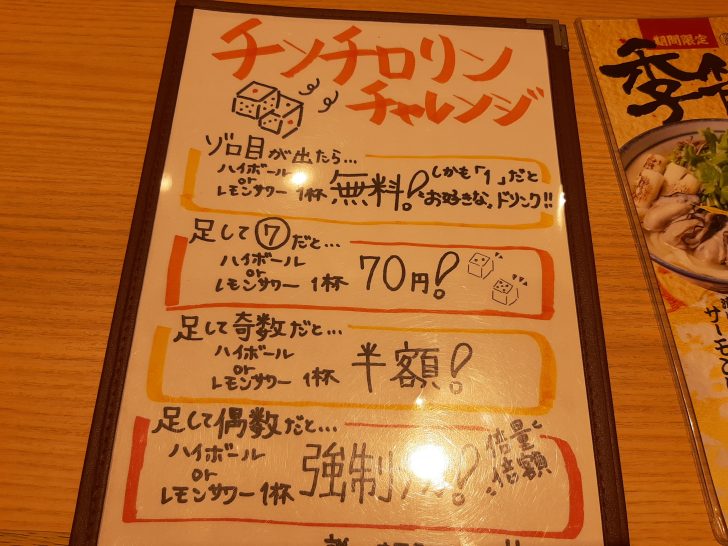 チンチロリン
チャレンジ
ゾロ目が出たら…
ハイボール
or
レモンサワー 1杯
無料!
しかも「1」だと
お好きな。ドリンク!!
足して⑦だと…
ハイボール
or
レモンサワー 1杯
70円!
足して奇数だと…
ハイボール
or
レモンサワー 1杯
半額!
足して偶数だと…
ハイボール
or
レモンサワー 1杯
強制
!
倍量で
倍額
期間限定
季